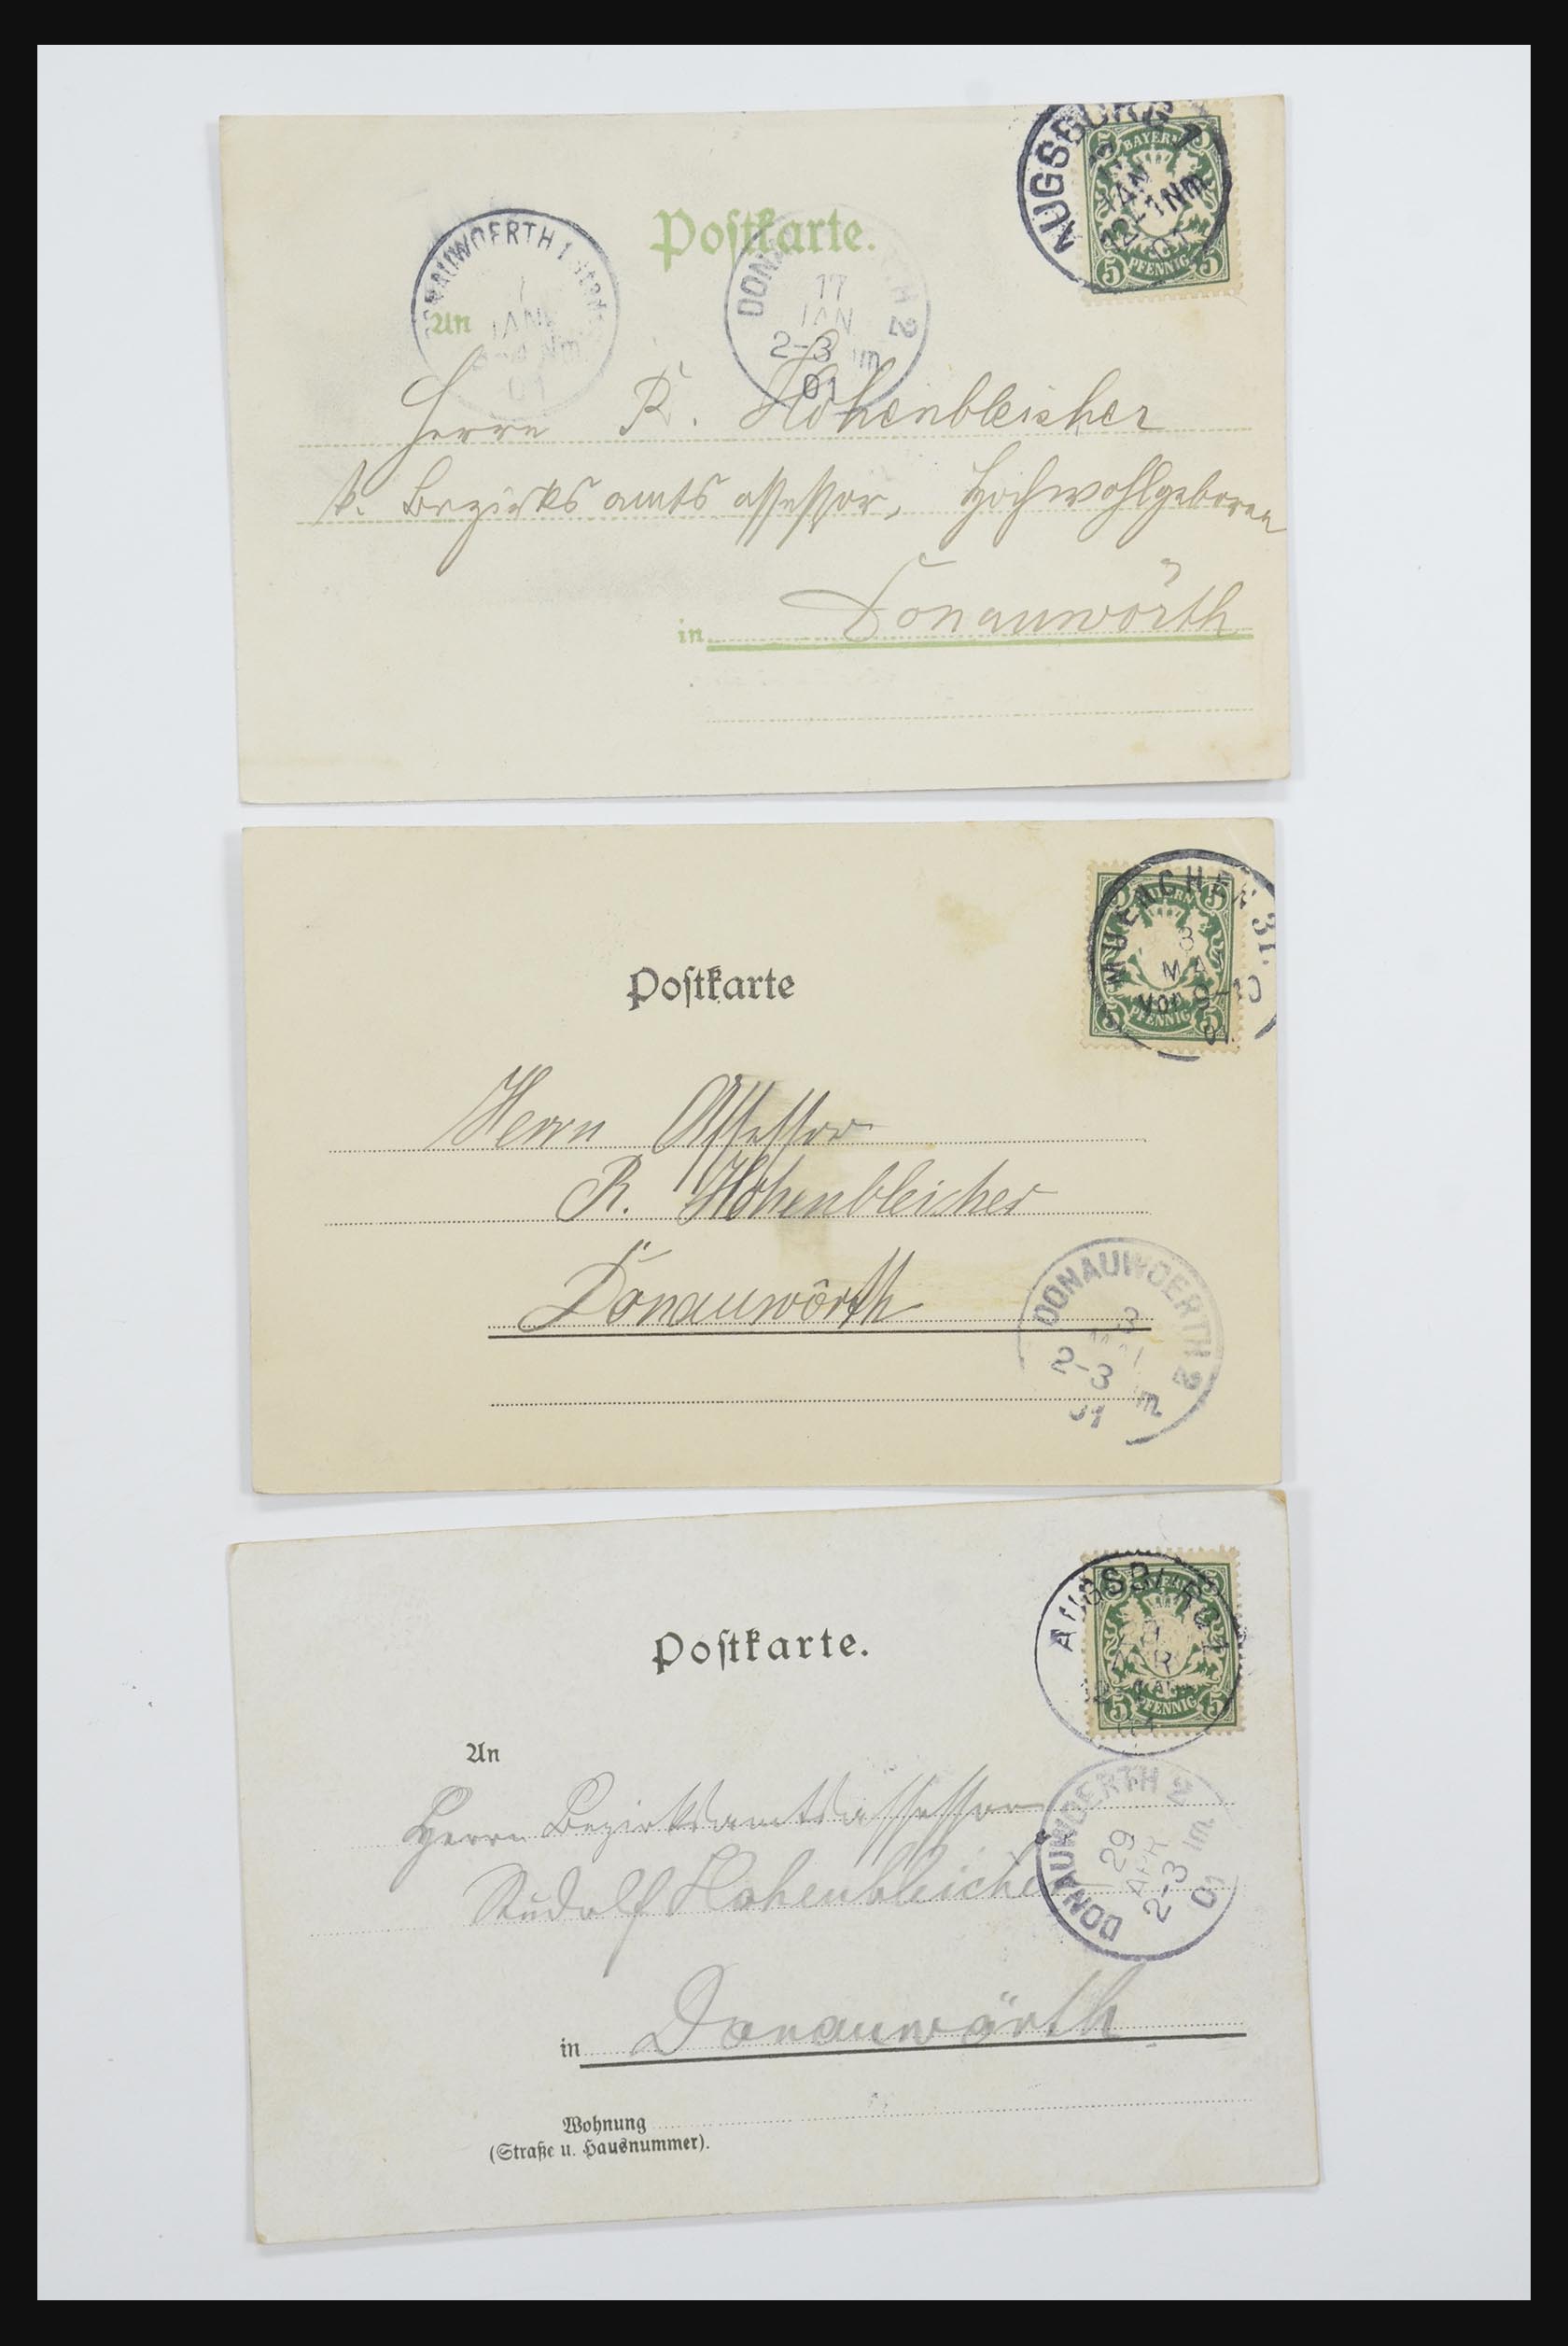 Postkarte.
AUGSBURG 1
JAN
12-1 Nm
01
5 BAYERN 5
5 PFENNIG 5
DONAUWOERTH 1
JAN
Nm
01
DONAUWOERTH 2
17
JAN
2-3 Nm
01
An
Herrn R. Hohenbleicher
k. Bezirksamtsassessor, Hochwohlgeboren
in Donauwörth
Postkarte
MUENCHEN 31.
8
MAI
Vor. 9-10
01
5 BAYERN 5
5 PFENNIG 5
Herrn Assessor
R. Hohenbleicher
Donauwörth
DONAUWOERTH 2
8
MAI
2-3 Nm
01
Postkarte.
AUGSBURG 1
5 BAYERN 5
5 PFENNIG 5
An
Herrn Bezirksamtsassessor
Rudolf Hohenbleicher
in Donauwörth
DONAUWOERTH 2
29
APR
2-3 Nm
01
Wohnung
(Straße u. Hausnummer).